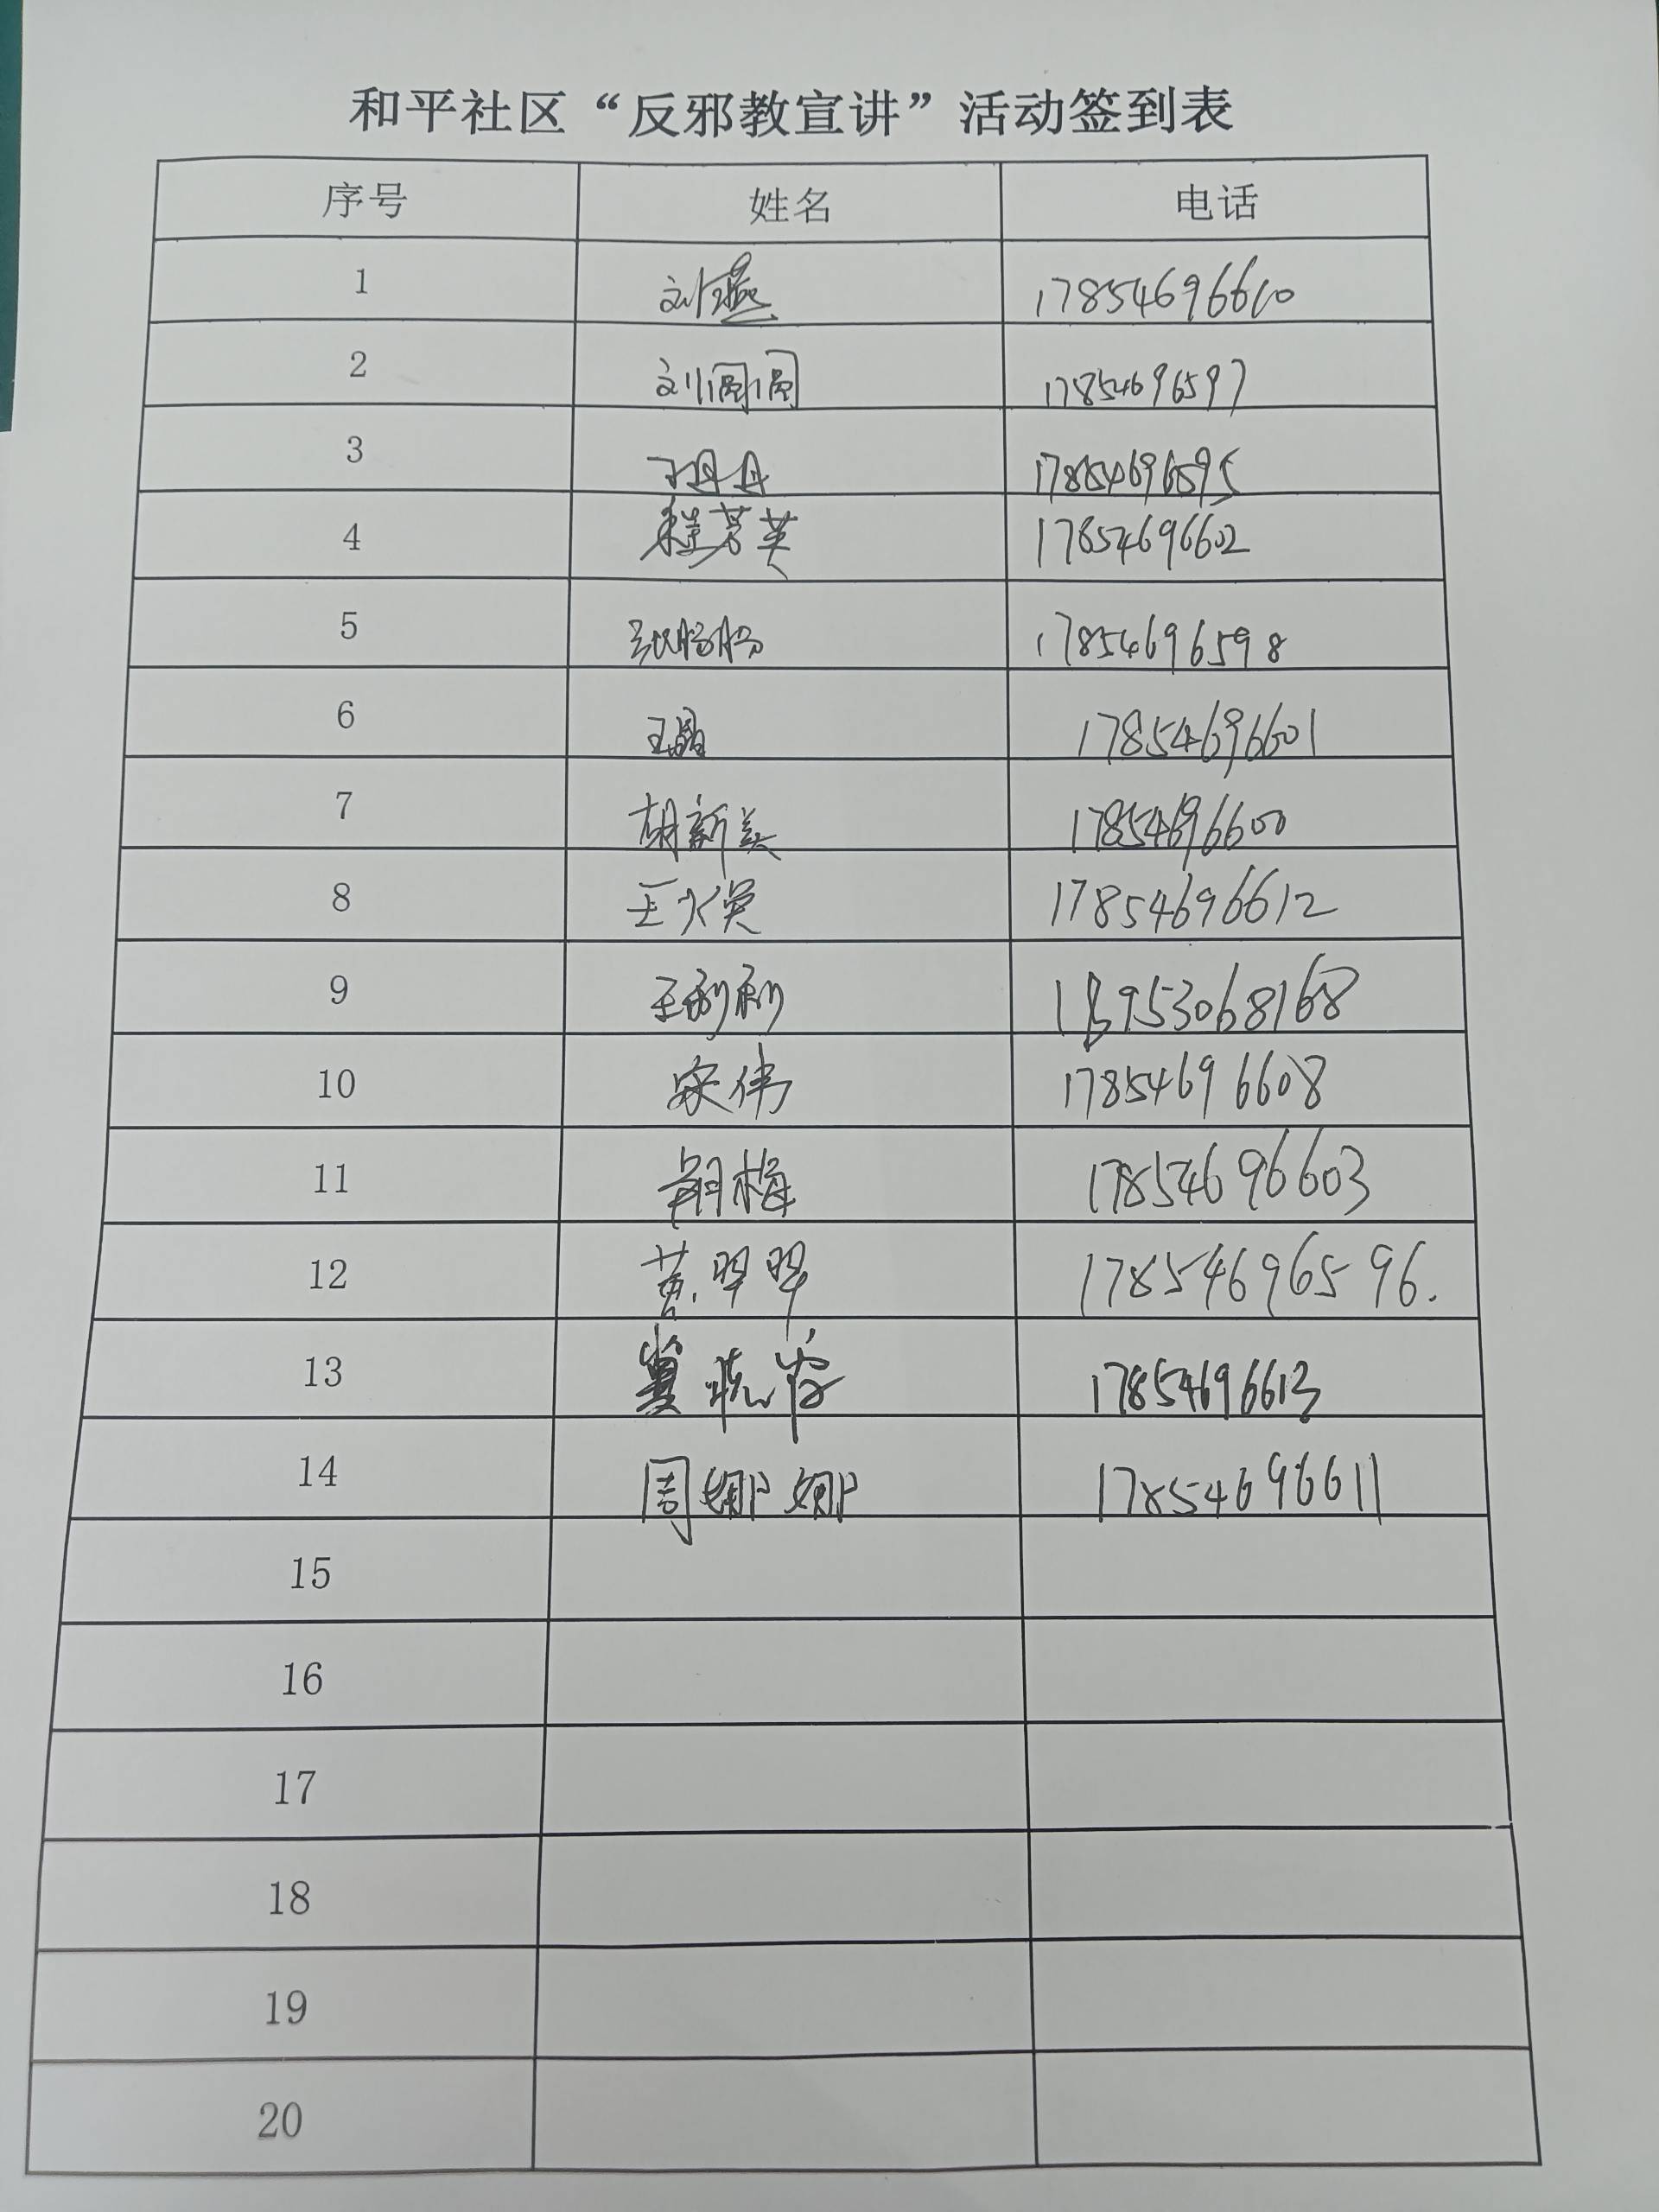 和平社区“反邪教宣讲”活动签到表
序号 姓名 电话
1 刘燕 17854696610
2 刘圆圆 17854696597
3 丹丹 17854696595
4 程芳英 17854696602
5 张杨杨 17854696598
6 王晶 17854696601
7 胡新美 17854696600
8 王火英 17854696612
9 王利利 18953068168
10 宋伟 17854696608
11 胡梅 17854696603
12 黄翠翠 17854696596.
13 冀 17854696613
14 周娜娜 17854696611
15
16
17
18
19
20